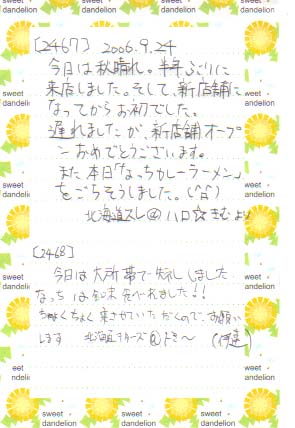 [2467] 2006.9.24
今日は秋晴れ。半年ぶりに
来店しました。そして、新店舗に
なってからお初でした。
遅れましたが、新店舗オープ
ンおめでとうございます。
また本日「なっちカレーラーメン」
をごちそうしました。(^^)
北海道スレ@ハロ☆きむより
[2468]
今日は大所帯で失礼しました
なっちは 食べれました!!
ちょくちょく来させていただくので、お願い
します 北海道 @ (伊達)
sweet dandelion
sweet dandelion
sweet dandelion
sweet dandelion
sweet dandelion
sweet dandelion
sweet dandelion
sweet dandelion
sweet dandelion
sweet dandelion